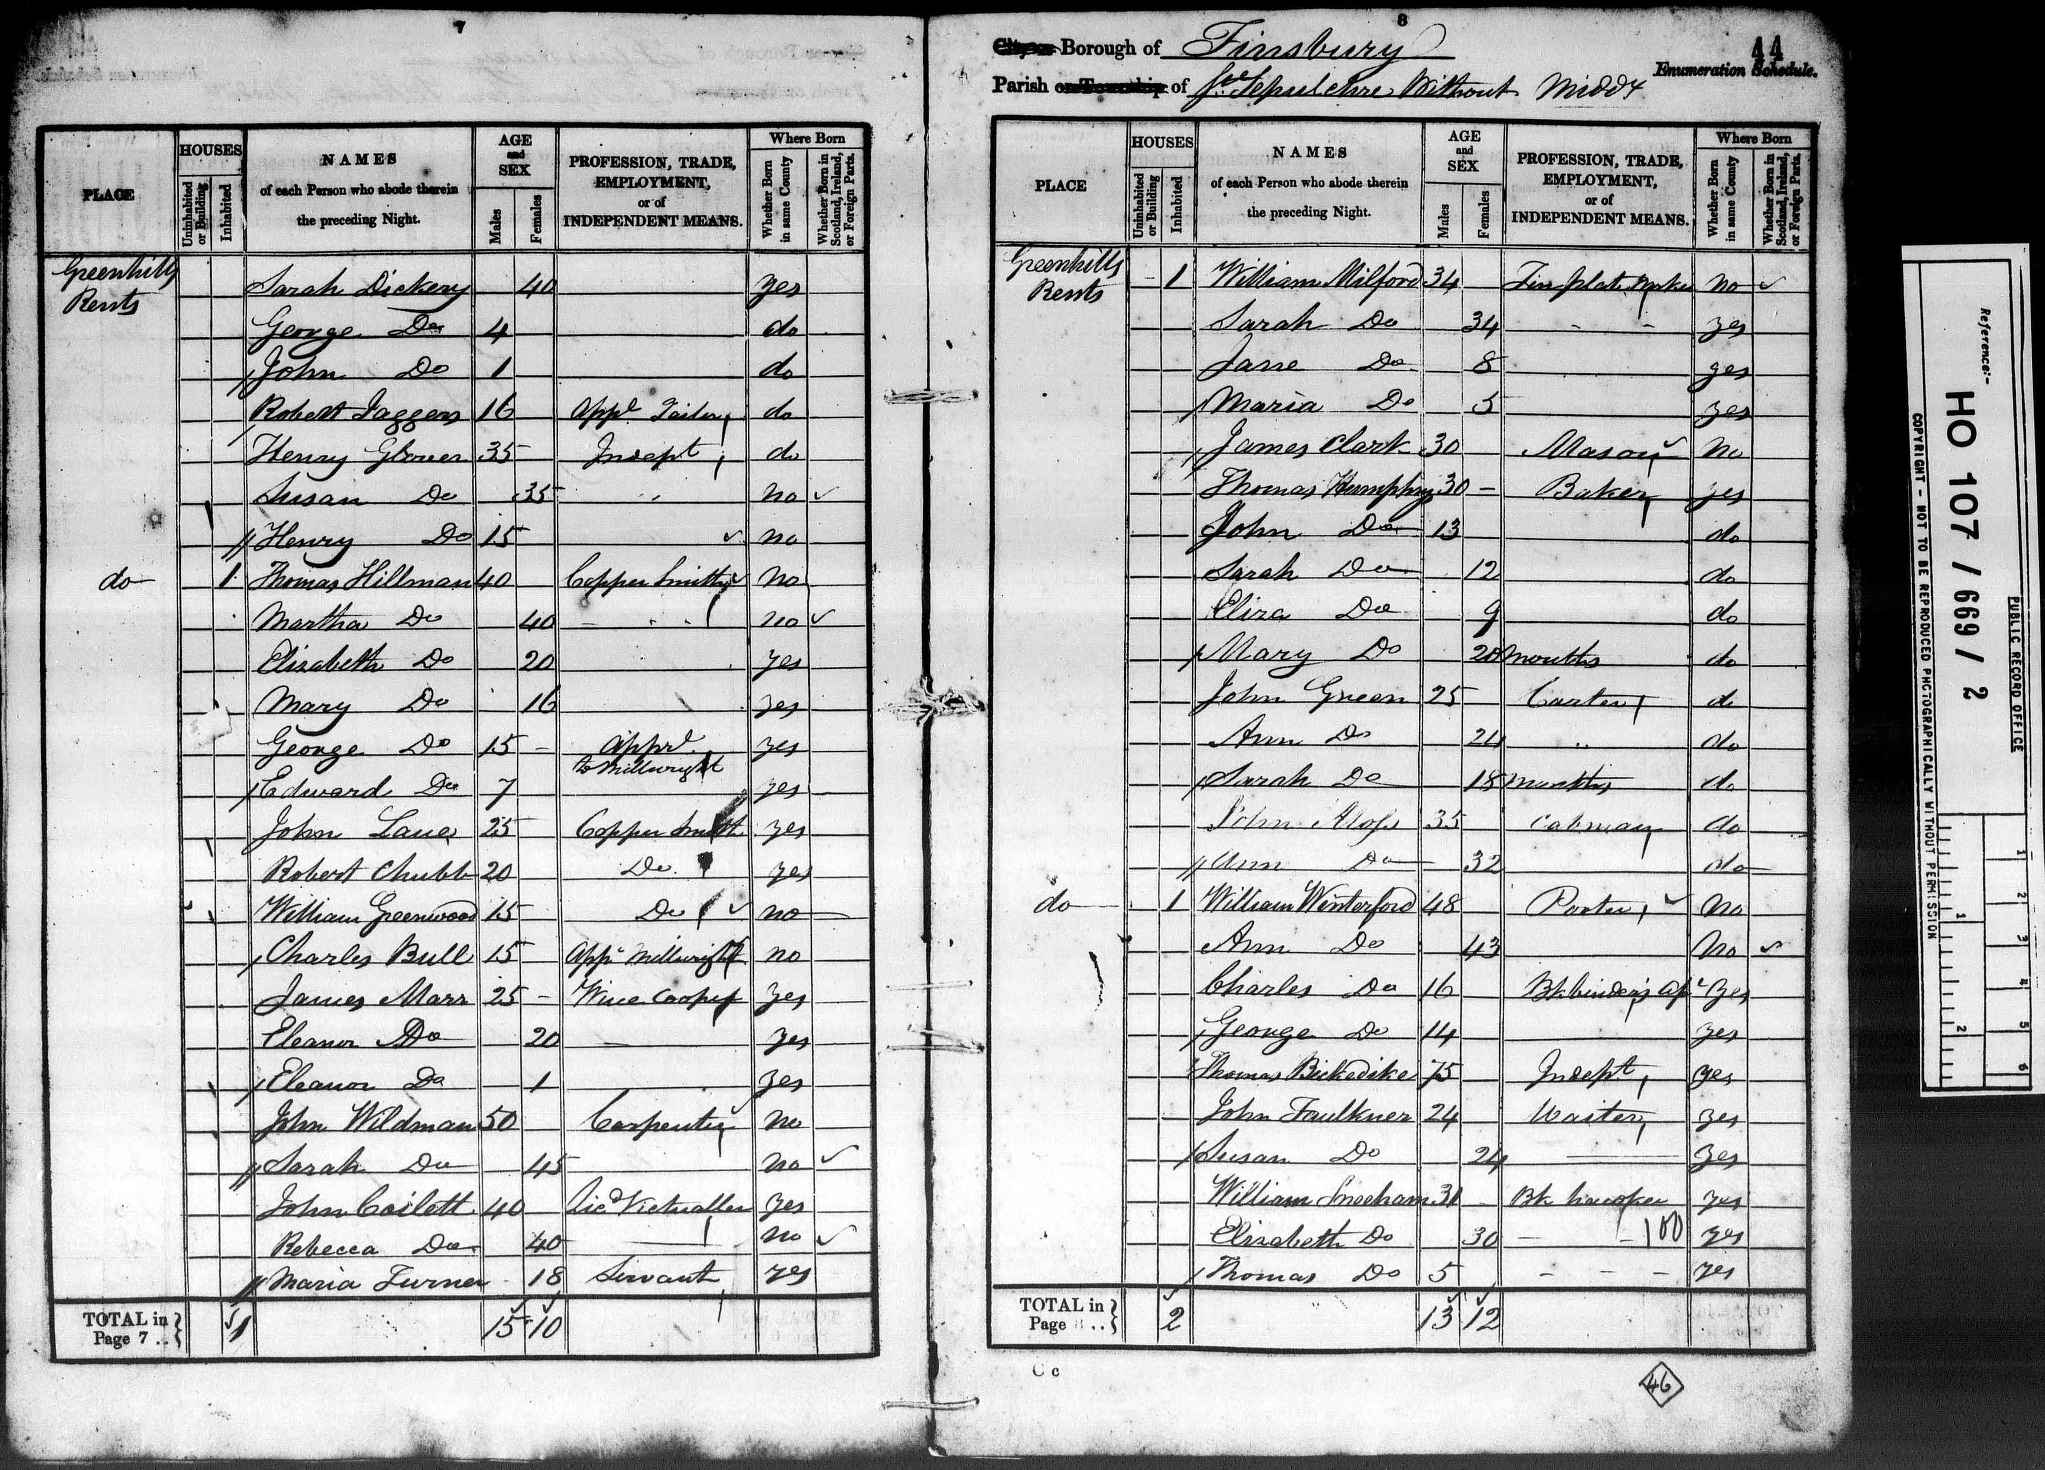 7
PLACE
HOUSES
Uninhabited or Building
Inhabited
NAMES
of each Person who abode therein
the preceding Night.
AGE
and
SEX
Males
Females
PROFESSION, TRADE,
EMPLOYMENT,
or of
INDEPENDENT MEANS.
Where Born
Whether Born in same County
Whether Born in Scotland, Ireland, or Foreign Parts.
Greenhills Rents
Sarah Dickery 40 yes
George Do 4 do
John Do 1 do
Robert Jaggers 16 App. Tailor do
Henry Glover 35 Indept do
Susan Do 35 no
Henry Do 15 no
do 1 Thomas Hillman 40 Copper Smith no
Martha Do 40 no
Elizabeth Do 20 yes
Mary Do 16 yes
George Do 15 - Appre yes
to Millwright
Edward Do 7 yes
John Lane 25 Copper Smith yes
Robert Chubb 20 Do yes
William Greenwood 15 Do no
Charles Bull 15 App. Millwright no
James Marr 25 - Wine Cooper yes
Eleanor Do 20 yes
Eleanor Do 1 yes
John Wildman 50 Carpenter no
Sarah Do 45 no
John Coilett 40 Licd Victualler yes
Rebecca Do 40 no
Maria Turner 18 Servant yes
TOTAL in Page 7 .. 1 15 10
8
City or Borough of Finsbury
44
Enumeration Schedule.
Parish or Township of St Sepulchre Without Middx
PLACE
HOUSES
Uninhabited or Building
Inhabited
NAMES
of each Person who abode therein
the preceding Night.
AGE
and
SEX
Males
Females
PROFESSION, TRADE,
EMPLOYMENT,
or of
INDEPENDENT MEANS.
Where Born
Whether Born in same County
Whether Born in Scotland, Ireland, or Foreign Parts.
Greenhills Rents
1 William Milford 34 Tin plate Worker no
Sarah Do 34 - - yes
Jane Do 8 yes
Maria Do 5 yes
James Clark 30 Mason no
Thomas Humphry 30 - Baker yes
John Do 13 do
Sarah Do 12 do
Eliza Do 9 do
Mary Do 20 months do
John Green 25 Carter do
Ann Do 24 " do
Sarah Do 18 months do
John 35 Cabman do
Ann Do 32 do
do 1 William Winterford 48 Porter no
Ann Do 43 no
Charles Do 16 Bk. binder's Ap. yes
George Do 14 yes
Thomas Beckedike 75 Indept yes
John Faulkner 24 Waiter yes
Susan Do 24 yes
William 31 - Bk yes
Elizabeth Do 30 - - 100 yes
Thomas Do 5 - - - yes
TOTAL in Page 8 .. 2 13 12
C c
46
Reference:-
HO 107 / 669 / 2
PUBLIC RECORD OFFICE
COPYRIGHT - NOT TO BE REPRODUCED PHOTOGRAPHICALLY WITHOUT PERMISSION
1
2
1
2
3
4
5
6